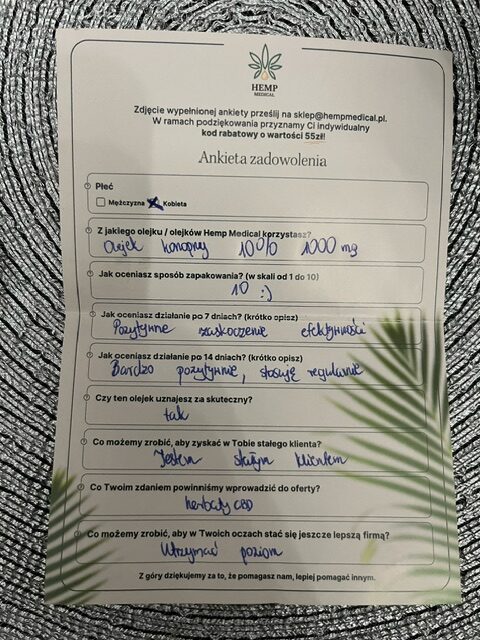 HEMP
MEDICAL
Zdjęcie wypełnionej ankiety prześlij na sklep@hempmedical.pl.
W ramach podziękowania przyznamy Ci indywidualny
kod rabatowy o wartości 55zł!
Ankieta zadowolenia
Płeć
Mężczyzna Kobieta
Z jakiego olejku / olejków Hemp Medical korzystasz?
Olejek konopny 10% 1000 mg
Jak oceniasz sposób zapakowania? (w skali od 1 do 10)
10 :)
Jak oceniasz działanie po 7 dniach? (krótko opisz)
Pozytywne zaskoczenie efektywności
Jak oceniasz działanie po 14 dniach? (krótko opisz)
Bardzo pozytywnie, stosuję regularnie
Czy ten olejek uznajesz za skuteczny?
tak
Co możemy zrobić, aby zyskać w Tobie stałego klienta?
Jestem stałym klientem
Co Twoim zdaniem powinniśmy wprowadzić do oferty?
herbaty CBD
Co możemy zrobić, aby w Twoich oczach stać się jeszcze lepszą firmą?
Utrzymać poziom
Z góry dziękujemy za to, że pomagasz nam, lepiej pomagać innym.